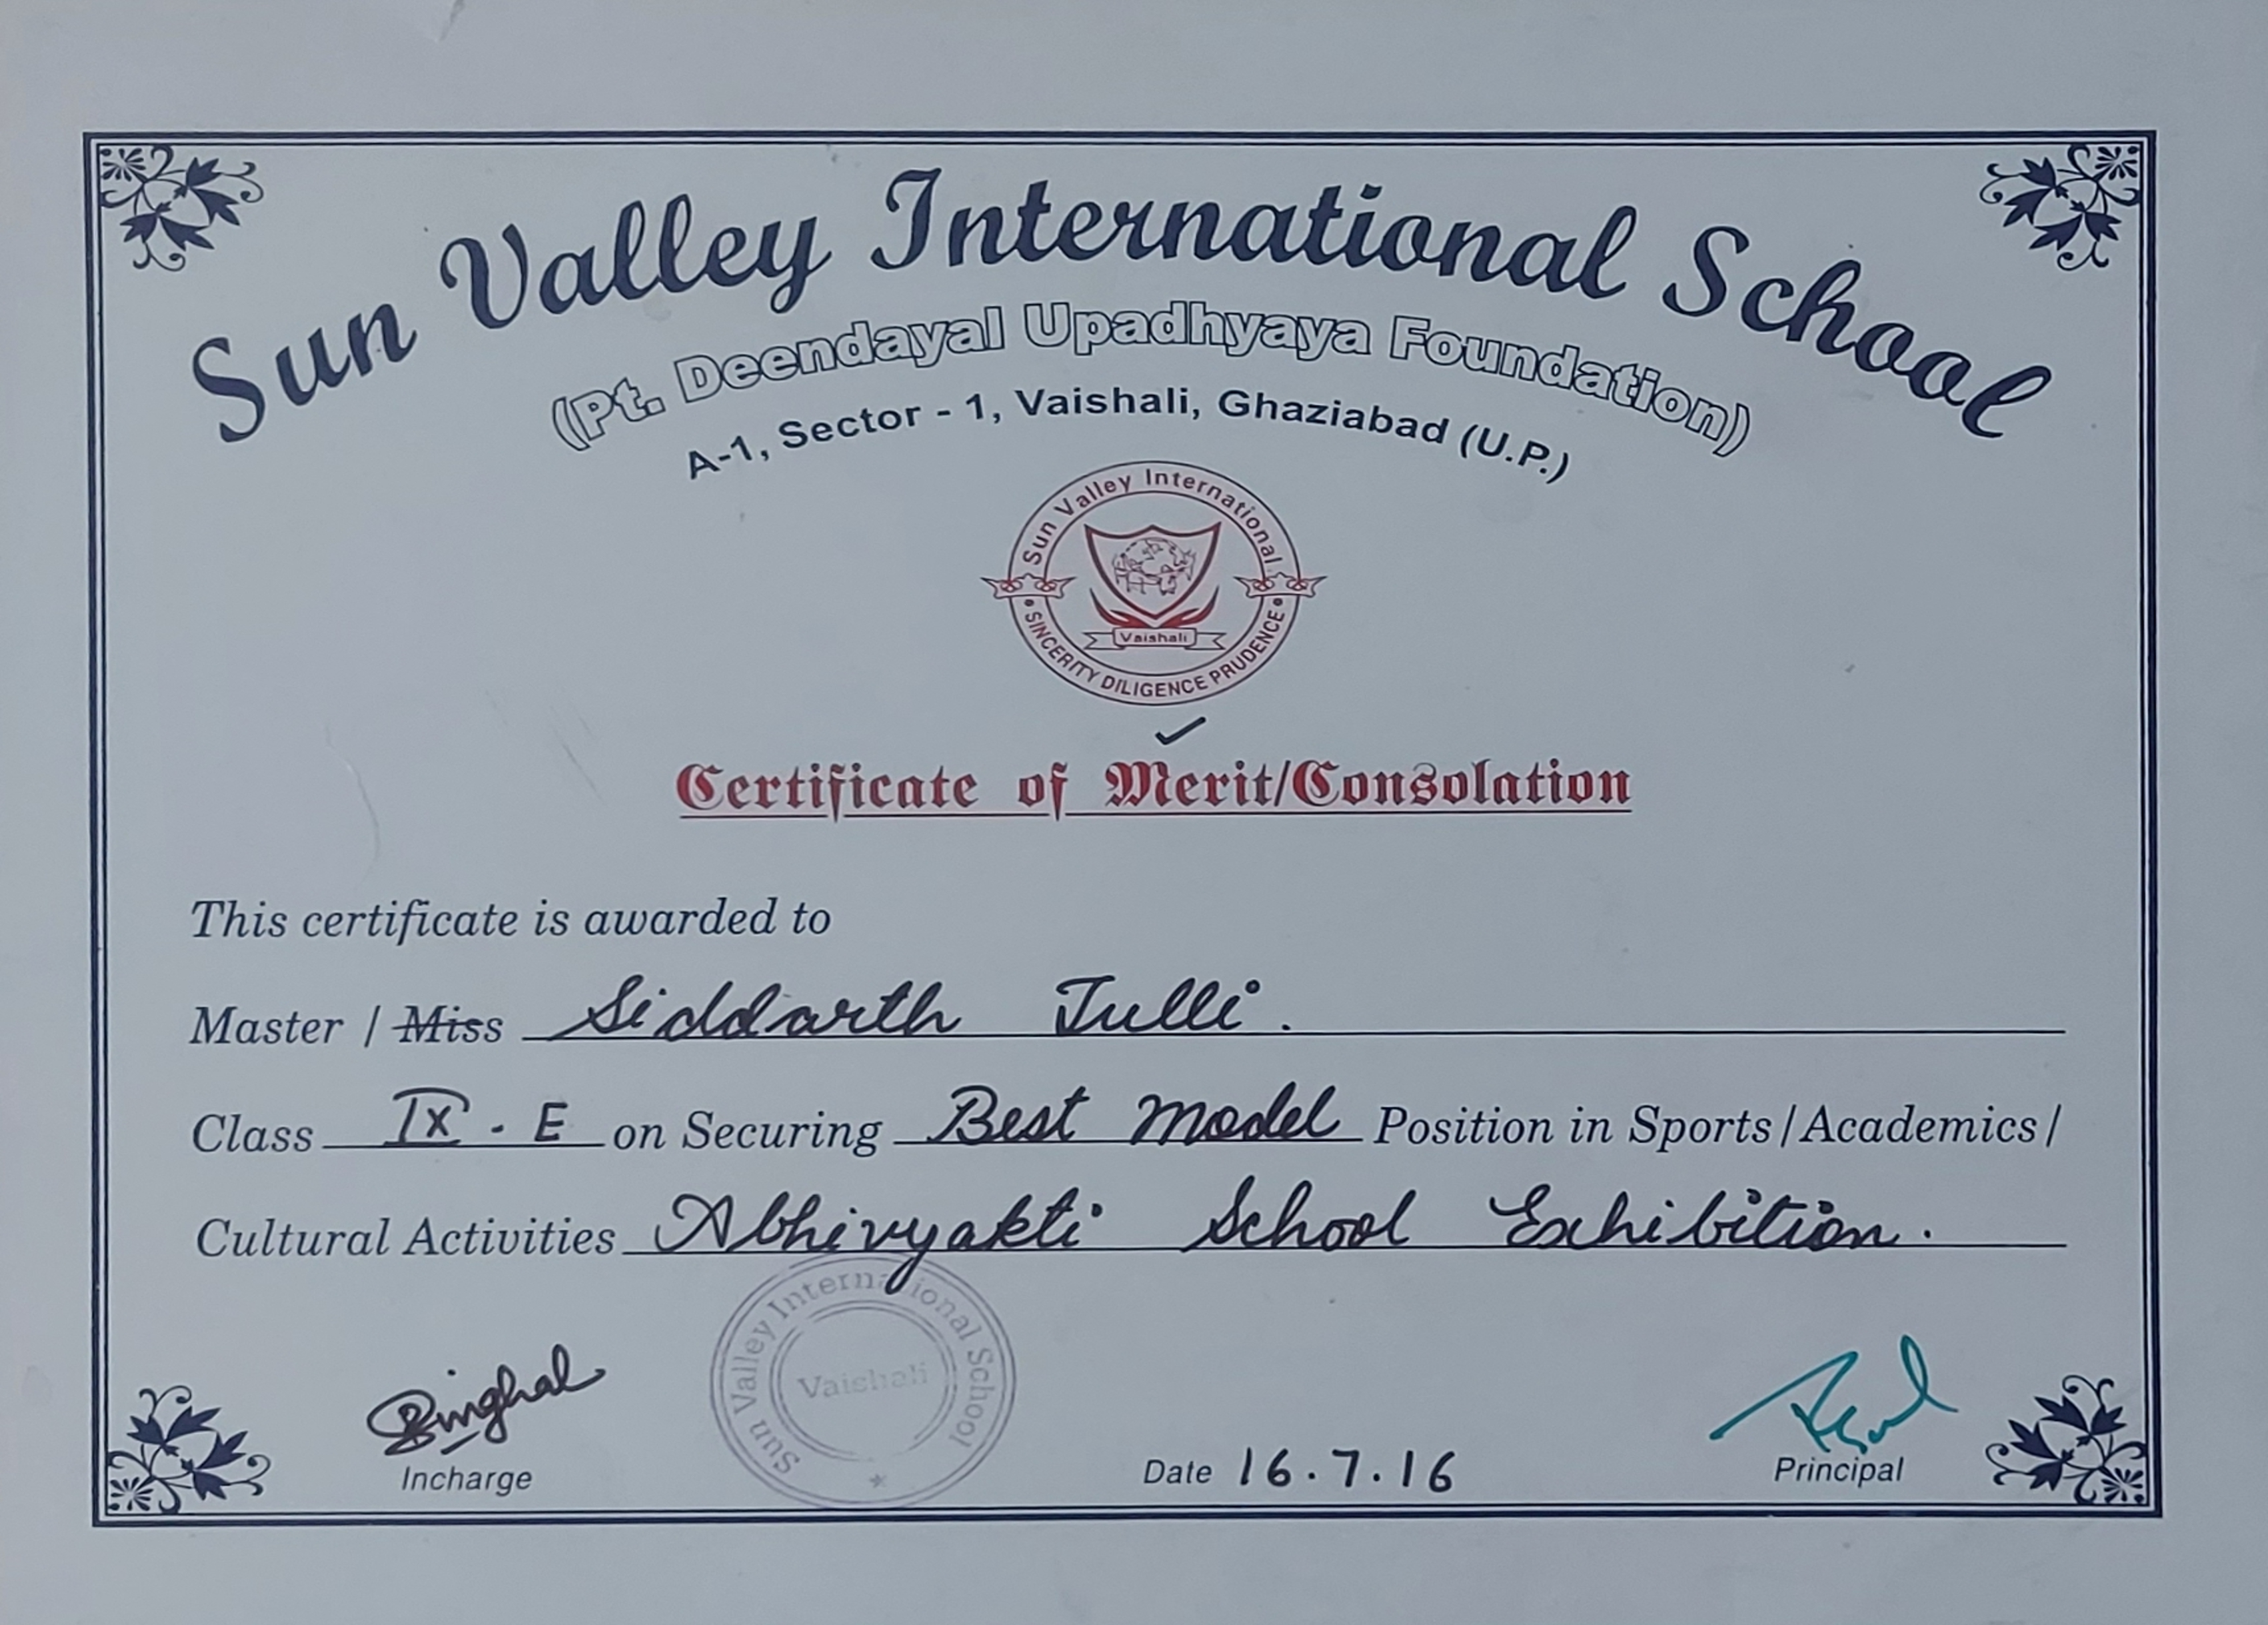 Sun Valley International School
(Pt. Deendayal Upadhyaya Foundation)
A-1, Sector - 1, Vaishali, Ghaziabad (U.P.)
Sun Valley International
Vaishali
SINCERITY DILIGENCE PRUDENCE
Certificate of Merit/Consolation
This certificate is awarded to
Master / Miss Siddarth Julli.
Class IX - E on Securing Best Model Position in Sports/Academics/
Cultural Activities Abhivyakti School Exhibition.
Sun Valley International School
Vaishali
Singhal
Incharge
Date 16.7.16
Principal